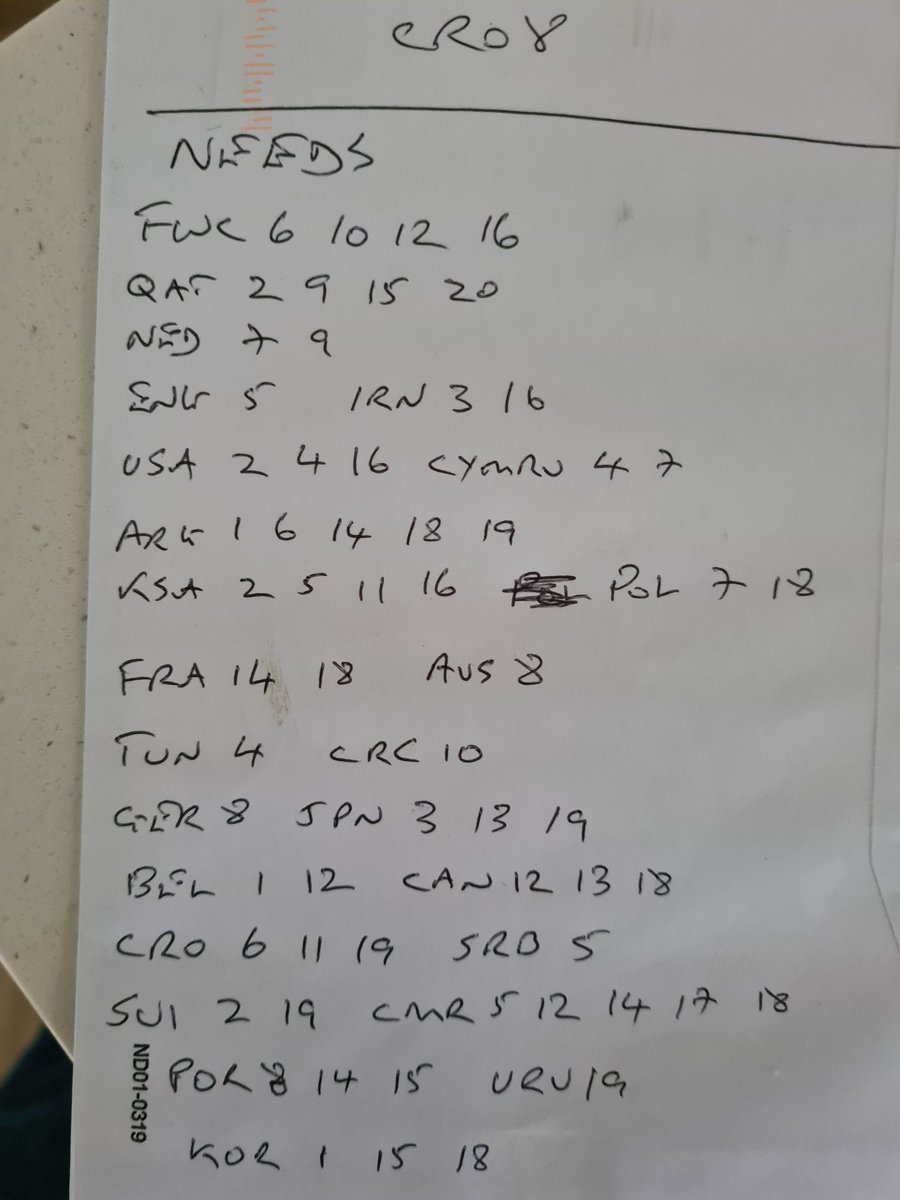 CRO 8
NEEDS
FWC 6 10 12 16
QAT 2 9 15 20
NED 7 9
ENG 5 IRN 3 16
USA 2 4 16 CYMRU 4 7
ARG 1 6 14 18 19
KSA 2 5 11 16 POL 7 18
FRA 14 18 AUS 8
TUN 4 CRC 10
GER 8 JPN 3 13 19
BEL 1 12 CAN 12 13 18
CRO 6 11 19 SRB 5
SUI 2 19 CMR 5 12 14 17 18
POR 8 14 15 URU 19
KOR 1 15 18
ND01-0319